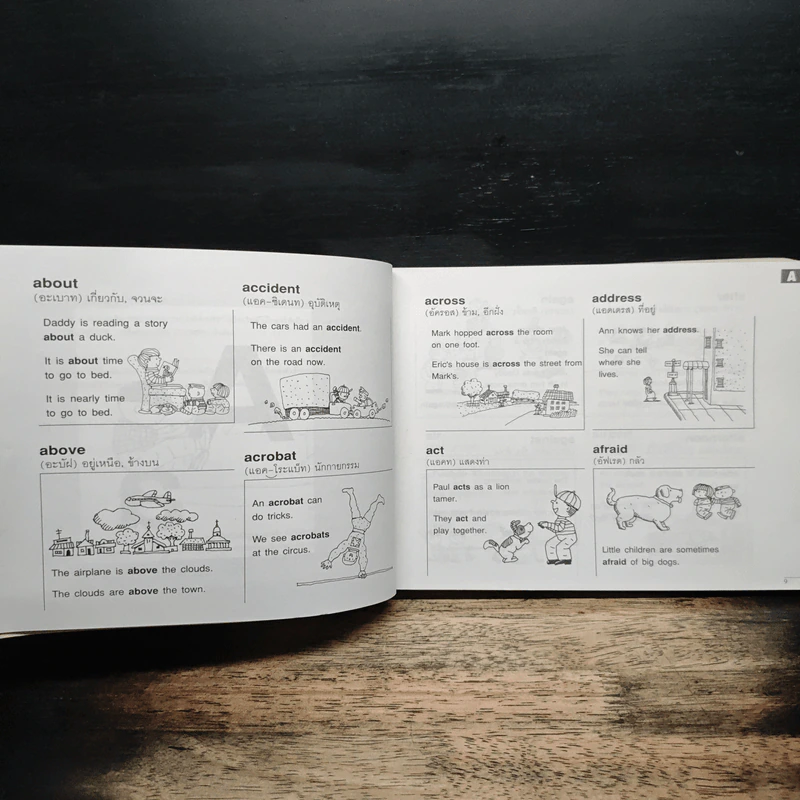 about
(อะเบาท) เกี่ยวกับ, จวนจะ
Daddy is reading a story
about a duck.
It is about time
to go to bed.
It is nearly time
to go to bed.
accident
(แอค-ซิเดนท) อุบัติเหตุ
The cars had an accident.
There is an accident
on the road now.
above
(อะบัฝ) อยู่เหนือ, ข้างบน
The airplane is above the clouds.
The clouds are above the town.
acrobat
(แอค-โระแบ็ท) นักกายกรรม
An acrobat can
do tricks.
We see acrobats
at the circus.
A
across
(อัครอส) ข้าม, อีกฝั่ง
Mark hopped across the room
on one foot.
Eric's house is across the street from
Mark's.
address
(แอดเดรส) ที่อยู่
Ann knows her address.
She can tell
where she
lives.
act
(แอคท) แสดงท่า
Paul acts as a lion
tamer.
They act and
play together.
afraid
(อัฟเรด) กลัว
Little children are sometimes
afraid of big dogs.